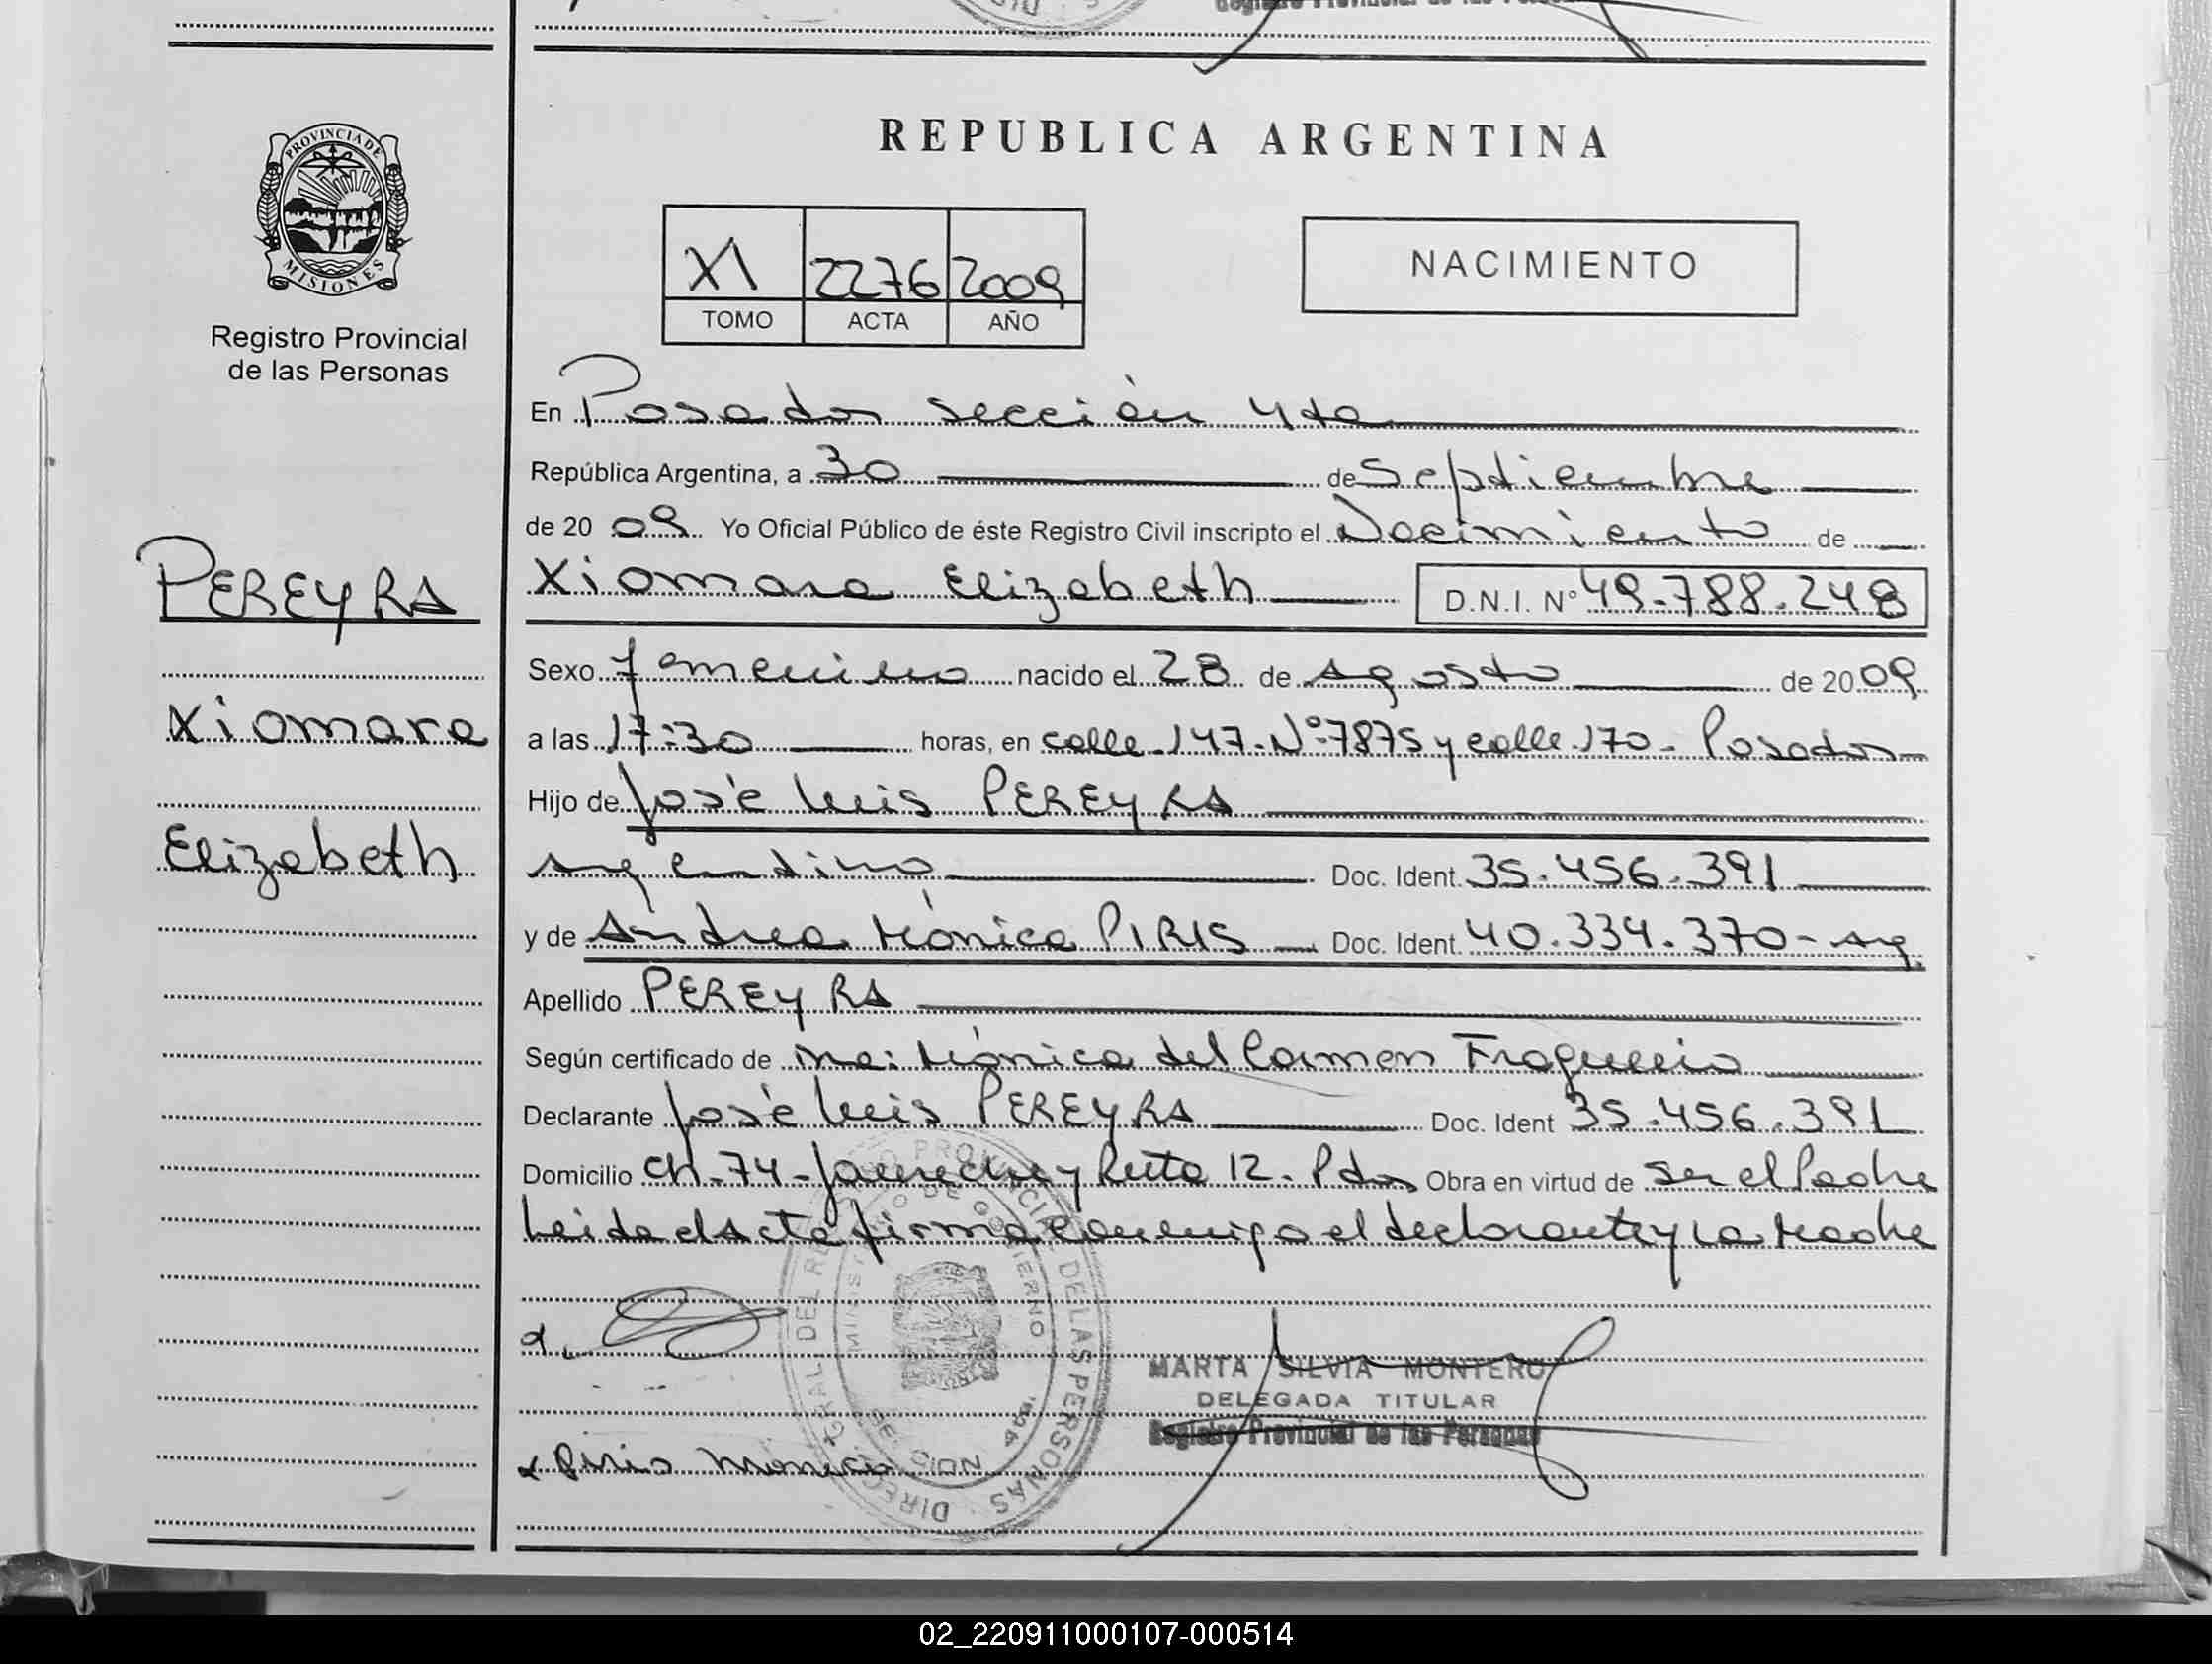 PROVINCIA DE
MISIONES
Registro Provincial
de las Personas
PEREYRA
Xiomara
Elizabeth
REPUBLICA ARGENTINA
XI 2276 2009
TOMO ACTA AÑO
NACIMIENTO
En Posadas sección 4ta
República Argentina, a 30 de Septiembre
de 20 09 Yo Oficial Público de éste Registro Civil inscripto el Nacimiento de
Xiomara Elizabeth D.N.I. N° 49.788.248
Sexo femenino nacido el 28 de Agosto de 20 09
a las 17:30 horas, en calle 147-N°7875 y calle 170- Posadas
Hijo de José Luis PEREYRA
Argentino Doc. Ident. 35.456.391
y de Andrea Mónica PIRIS Doc. Ident. 40.334.370- Arg.
Apellido PEREYRA
Según certificado de Mónica del Carmen
Declarante José Luis PEREYRA Doc. Ident 35.456.391
Domicilio Ch. 74-Jauretche y Ruta 12. Pdas Obra en virtud de Ser el Padre
Leida el Acta firma conmigo el declarante y la Madre
DIRECC. GRAL. DEL REGISTRO PROVINCIAL DE LAS PERSONAS
MINISTERIO DE GOBIERNO
SECCION 4ta.
MARTA SILVIA MONTERO
DELEGADA TITULAR
Registro Provincial de las Personas
Piris Monica
02_220911000107-000514